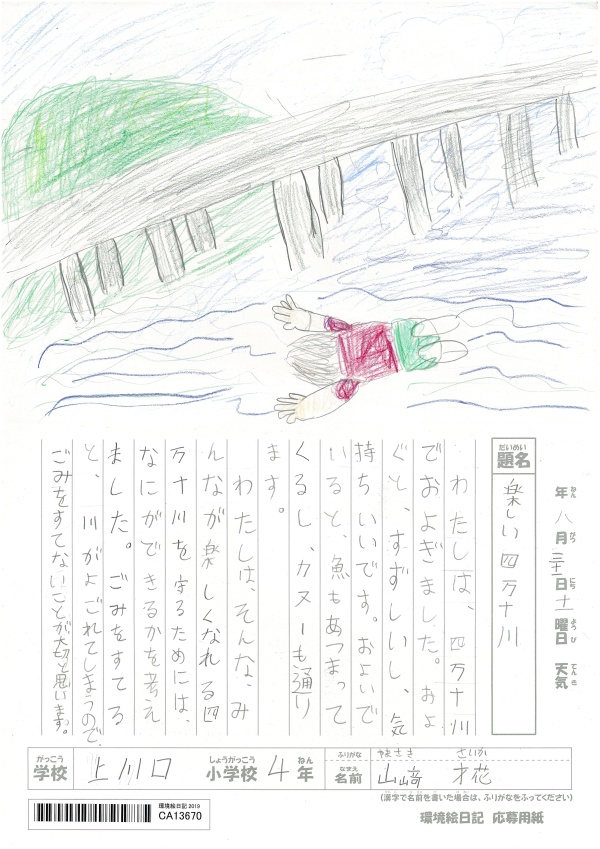 年 八月 三十一日 土曜日 天気
ねん がつ にち ようび てんき
だいめい
題名 楽しい四万十川
わたしは、四万十川
でおよぎました。およ
ぐと、すずしいし、気
持ちいいです。およいで
いると、魚もあつまって
くるし、カヌーも通り
ます。
わたしは、そんな、み
んなが楽しくなれる四
万十川を守るためには、
なにができるかを考え
ました。ごみをすてる
と、川がよごれてしまうので、
ごみをすてないことが大切と思います。
がっこう しょうがっこう ねん ふりがな やまさき さいか
学校 上川口 小学校 4年 なまえ 名前 山﨑 才花
(漢字で名前を書いた場合は、ふりがなをふってください)
環境絵日記 応募用紙
環境絵日記 2019
CA13670